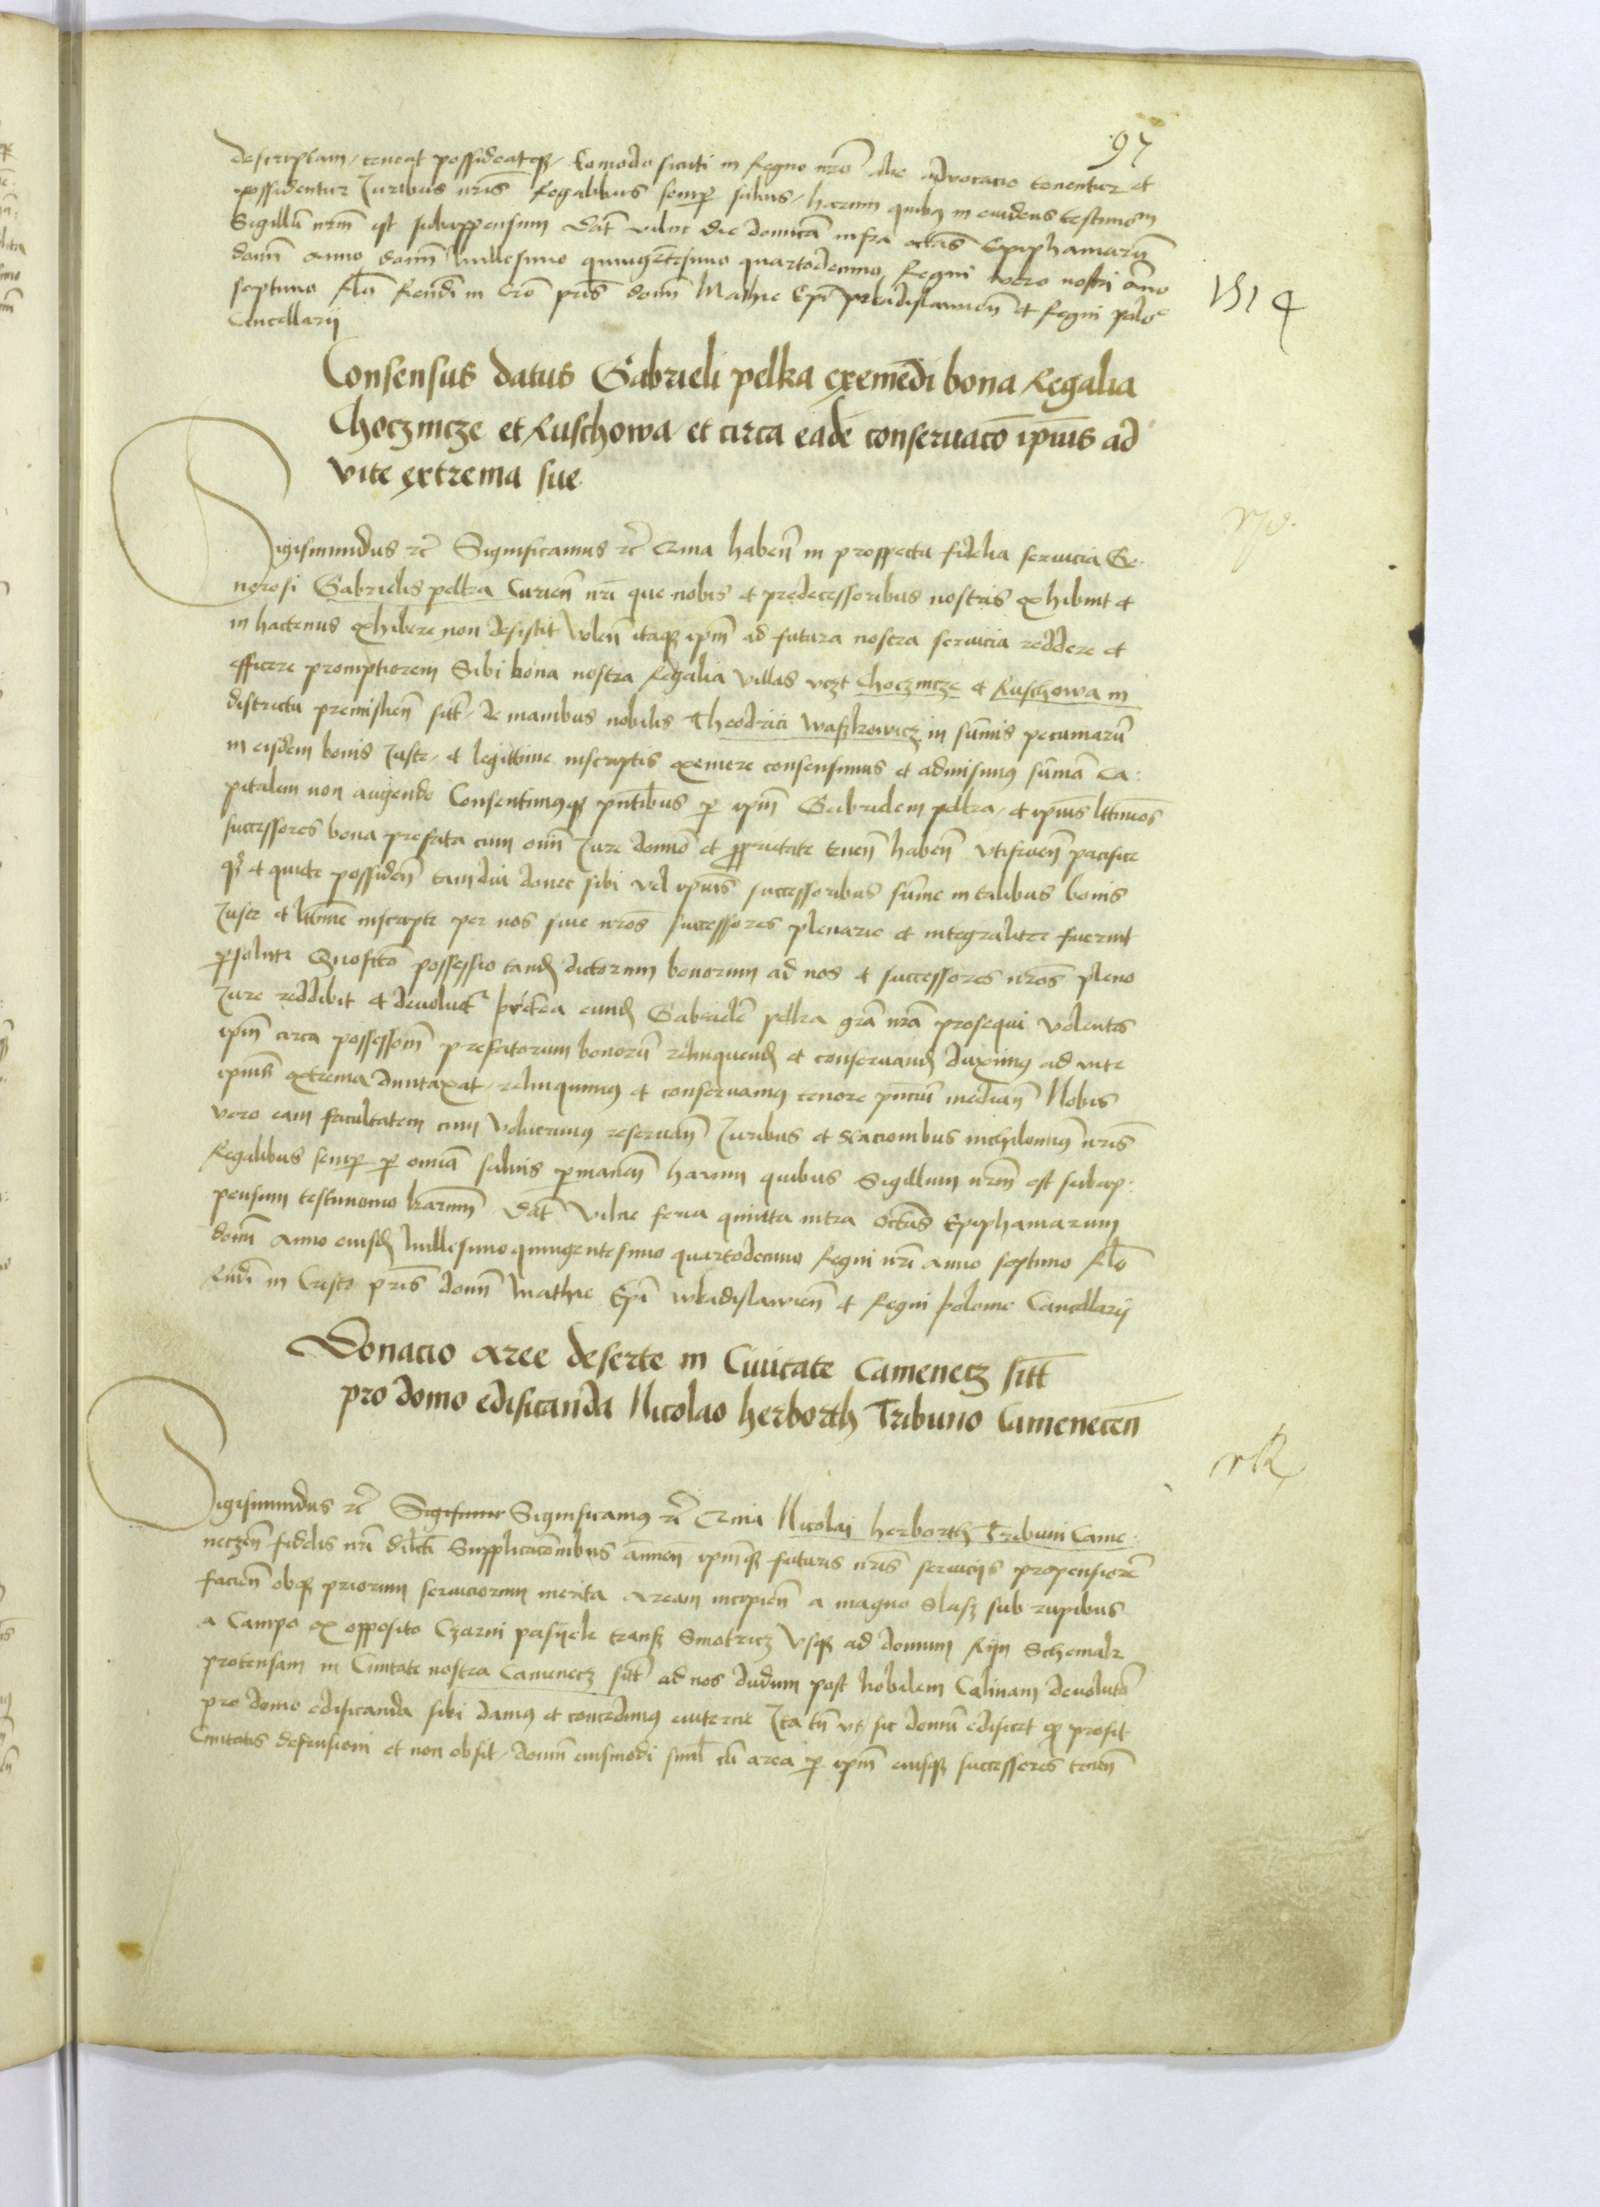 97
descriptam, teneat possideatq, Eomodo sicuti in Regno nro alie advocatie tenentur et
possidentur Juribus nris Regalibus semp salvis, harum quibus in evidens testimom
Sigillu nrm est subappensum Dat vilne die domica infra octas Epiphaniarum
domi Anno domi Millesimo quingetesimo quartodecimo Regni vero nostri Anno
septimo Rlo Rendi in Cro pris domi Mathie Epi wladislavien et Regni polo
Cancellarii
1514
Consensus datus Gabrieli pelka exemedi bona Regalia
Choczmcze et Ruschowa et circa eade conservaco ipius ad
vite extrema sue
Sigismundus rc Significamus rc Qma haben in prospectu fidelia servicia Ge
nerosi Gabrielis pelka Curien nri que nobis et predecessoribus nostris exhibuit et
in hactenus exhibere non desistit Volen itaq ipm ad futura nostra servicia reddere et
efficere promptiorem Sibi bona nostra Regalia Villas vczt Choczmcze et Ruschowa in
districtu premislien sitt, de manibus nobilis Theodrici Waszkowicz in sumis pecuniaru
in eisdem bonis Juste, et legittime inscriptis exemere consensimus et admisimus suma Ca
pitalem non augendo Consentimusq pntibus p ipm Gabrielem pelka, et ipius lttimos
successores bona prefata cum omi Jure domio et proprietate tenen haben utifruen pacifice
q et quiete possiden tamdiu donec sibi vel ipius successoribus sume in talibus bonis
Juste et lttime inscripte per nos sive nros successores plenarie et integraliter fuerint
psolute Quo fcto possessio tand dictorum bonorum ad nos et successores nros pleno
Jure reddibit et devolvet pretea eund Gabriele pelka gra nra prosequi volentes
ipm circa possessom prefatorum bonoru relinquend et conservand duximus ad vite
ipius extrema duntaxat, relinquimus et conservamus tenore pntium median Nobis
vero eam facultatem cum voluerimus reservan Juribus et dacionibus nihilomus nris
Regalibus semp p omia salvis pmanen harum quibus Sigillum nrm est subap
pensum testimonio lrarum Dat Vilne feria quinta intra Octas Epiphaniarum
domi Anno eiusd Millesimo quingentesimo quartodecimo Regni nri Anno septimo Rlo
Rndi in Cristo pris domi Mathie Epi wladislavien et Regni polonie Cancellarii
Donacio Aree deserte in Civitate Camenecz sitt
pro domo edificanda Nicolao Herborth Tribuno Camenecen
Sigismundus rc Sigifimus Significamus rc Qma Nicolai Herborth Tribuni Came
neczen fidelis nri dilcti Supplicacombus annuen ipmq futuris nris serviciis propensiore
facien obq priorum serviciorum merita Aream incipien a magno Slasz sub rupibus
a Campo ex opposito Czarni pasijek transz Smotricz Usq ad domum Rijn Schemak
protensam in Civitate nostra Camenecz sitt ad nos dudum post Nobilem Calinam devoluta
pro domo edificanda sibi damus et concedimus eviterne Ita tn ut sic domu edificet q prosit
Civitatis defensioni et non obsit, domu eiusmodi simul cu area p ipm eiusq successores tenen